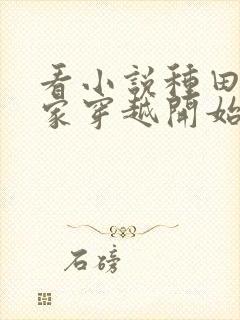 看小說種田
家穿越開始
石磅